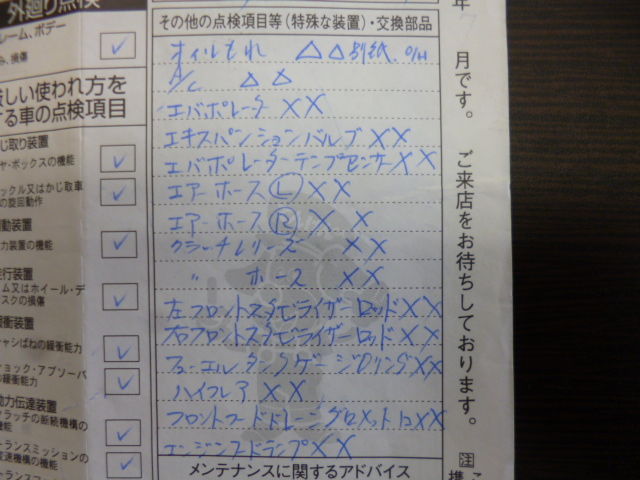 外廻り点検
レーム、ボデー
み、損傷
厳しい使われ方を
する車の点検項目
じ取り装置
ヤ・ボックスの機能
ックル又はかじ取車
の旋回動作
制動装置
力装置の機能
走行装置
ーム又はホイール・デ
スクの損傷
緩衝装置
ャシばねの緩衝能力
ョック・アブソーバ
の緩衝能力
動力伝達装置
クラッチの断続機構の
機能
トランスミッションの
変速機構の機能
その他の点検項目等(特殊な装置)・交換部品
オイルもれ △△別紙 O/H
A/C △△
エバポレーター XX
エキスパンションバルブ XX
エバポレーターテンプセンサー XX
エアーホース Ⓛ XX
エアーホース Ⓡ XX
クラッチレリーズ XX
〃 ホース XX
左フロントスタビライザーロッド XX
右フロントスタビライザーロッド XX
フューエルタンクゲージOリング XX
ハイフレア XX
フロントフードドレーングロメット XX
エンジンフードランプ XX
メンテナンスに関するアドバイス
年 7 月です。 ご来店をお待ちしております。
注